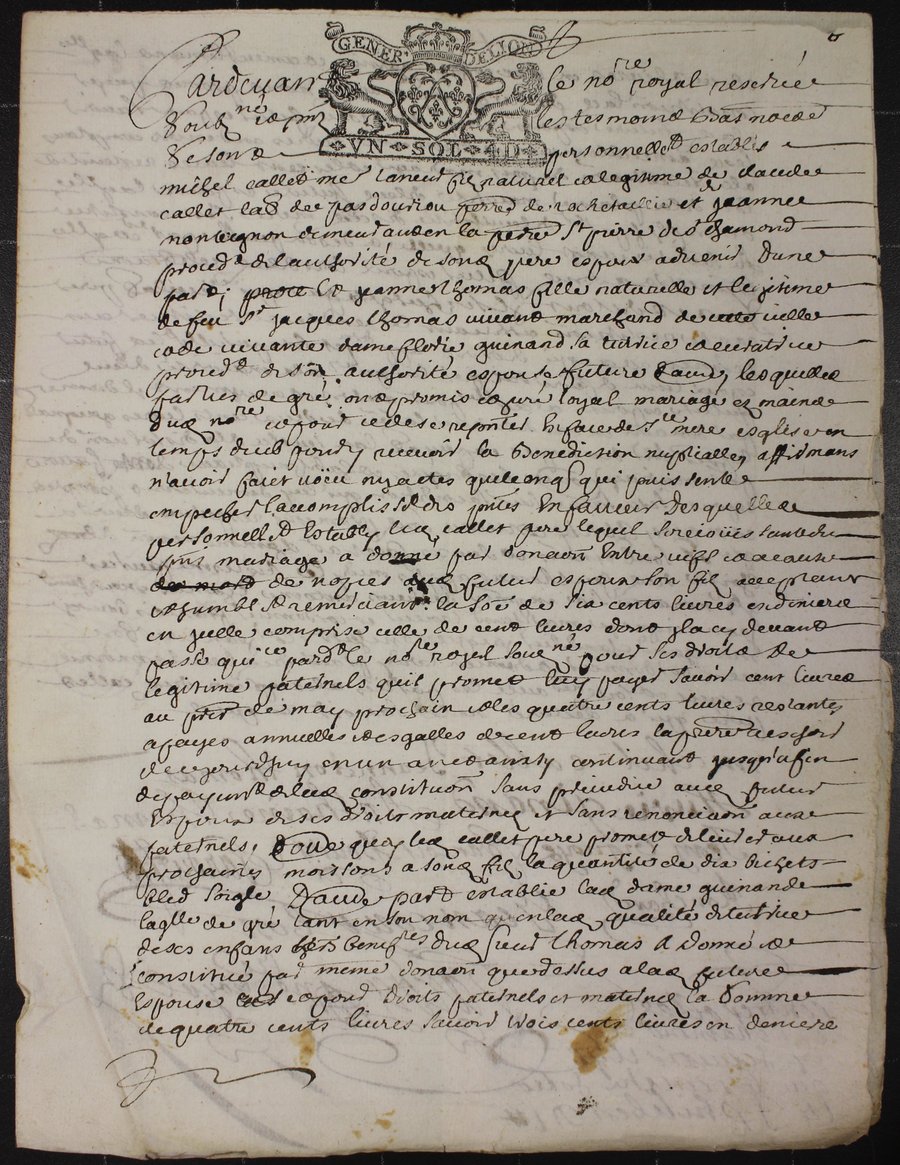 GENER DE LION
VN SOL 4D
Pardevant le no.re royal reservé
soub.né et p̃nt les tesmoins bas nommés
personnellem.t establis
michel callet me taneur fils naturel et legitime de claude
callet lab.r de par.sse de rochetaillée et de jeanne
montagnon demeurant en la par.sse S.t pierre de S.t chamond
proced.t de l'authorité de son d. pere espoux advenir d'une
part; et jeanne thomas fille naturelle et legitime
de feu s.r jacques thomas vivant marchand de cette ville
et de vivante dame florie guinand sa tutrice et curatrice
proced.t de son authorité espouse future d'autre, lesquelles
parties de gré ont promis et juré loyal mariage ez mains
du d. no.re et pour ce de se reporter en face de s.te mere esglise en
temps deub pour y recevoir la benediction nuptialle, affirmans
n'avoir fait vœu ny actes quelconqs qui puissent
empecher l'accomplissem.t des p̃ntes en faveur desquelles
personnellem.t estably led. callet pere lequel
mariage a donné par donaõn entre vifs et a cause
de nopces aud. futur espoux son fils acceptant
et humblem.t remerciant la so.e de six cents livres en deniers
en icelle comprise celle de cent livres dont
no.re royal soub.né pour ses droits de
legitime paternels qu'il promet luy payer savoir cent livres
au de may prochain et les quatre cents livres restantes
a payes annuelles et esgalles de cent livres la premiere
de ce jourd'huy en un an et ainsy continuant jusqu'a fin
de payem.t de lad. constitution sans prejudice aud. futur
espoux de ses droits maternels et sans renonciaõn aux
paternels, outre quoy led. callet pere promet delivrer aux
prochaines moissons a son d. fils la quantité de dix bichets
bled seigle D'autre part establie lad. dame guinand
laq.lle de gré tant en son nom qu'en lad. qualité de tutrice
de ses enfans benef.res dud. sieur thomas a donné et
constitué par meme donaõn que dessus a lad. future
espouse et pour droits paternels et maternels la somme
de quatre cents livres savoir trois cents livres en deniers